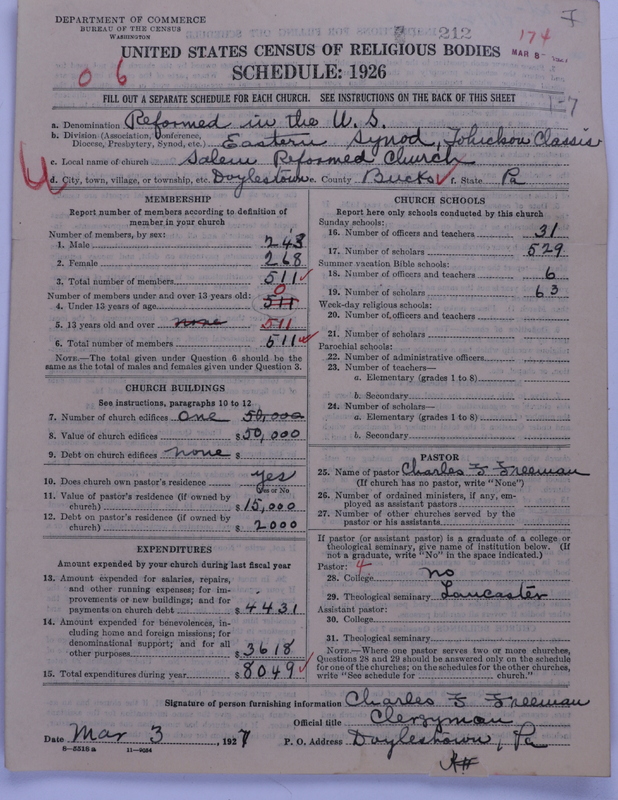 DEPARTMENT OF COMMERCE
BUREAU OF THE CENSUS
WASHINGTON
212
174
MAR 8
UNITED STATES CENSUS OF RELIGIOUS BODIES
SCHEDULE: 1926
0 6
FILL OUT A SEPARATE SCHEDULE FOR EACH CHURCH. SEE INSTRUCTIONS ON THE BACK OF THIS SHEET
1-7
a. Denomination Reformed in the U.S.
b. Division (Association, Conference, Diocese, Presbytery, Synod, etc.) Eastern Synod, Tohickon Classis
c. Local name of church Salem Reformed Church
d. City, town, village, or township, etc. Doylestown e. County Bucks f. State Pa
MEMBERSHIP
Report number of members according to definition of
member in your church
Number of members, by sex:
1. Male 243
2. Female 268
3. Total number of members 511
Number of members under and over 13 years old:
0
4. Under 13 years of age 511
5. 13 years old and over none 511
6. Total number of members 511
NOTE.—The total given under Question 6 should be the
same as the total of males and females given under Question 3.
CHURCH BUILDINGS
See instructions, paragraphs 10 to 12
7. Number of church edifices one 50,000
8. Value of church edifices $50,000
9. Debt on church edifices none $
10. Does church own pastor's residence yes
Yes or No
11. Value of pastor's residence (if owned by
church) $15,000
12. Debt on pastor's residence (if owned by
church) $2000
EXPENDITURES
Amount expended by your church during last fiscal year
13. Amount expended for salaries, repairs,
and other running expenses; for im-
provements or new buildings; and for
payments on church debt $4431
14. Amount expended for benevolences, in-
cluding home and foreign missions; for
denominational support; and for all
other purposes $3618
15. Total expenditures during year $8049
CHURCH SCHOOLS
Report here only schools conducted by this church
Sunday schools:
16. Number of officers and teachers 31
17. Number of scholars 529
Summer vacation Bible schools:
18. Number of officers and teachers 6
19. Number of scholars 63
Week-day religious schools:
20. Number of officers and teachers
21. Number of scholars
Parochial schools:
22. Number of administrative officers
23. Number of teachers—
a. Elementary (grades 1 to 8)
b. Secondary
24. Number of scholars—
a. Elementary (grades 1 to 8)
b. Secondary
PASTOR
25. Name of pastor Charles F Freeman
(If church has no pastor, write "None")
26. Number of ordained ministers, if any, em-
ployed as assistant pastors
27. Number of other churches served by the
pastor or his assistants
If pastor (or assistant pastor) is a graduate of a college or
theological seminary, give name of institution below. (If
not a graduate, write "No" in the space indicated.)
Pastor: 4
28. College no
29. Theological seminary Lancaster
Assistant pastor:
30. College
31. Theological seminary
NOTE.—Where one pastor serves two or more churches,
Questions 28 and 29 should be answered only on the schedule
for one of the churches; on the schedules for the other churches,
write "See schedule for church."
Signature of person furnishing information Charles F Freeman
Official title Clergyman
Date Mar 3, 1927 P. O. Address Doylestown, Pa
8—5518 a 11—9054